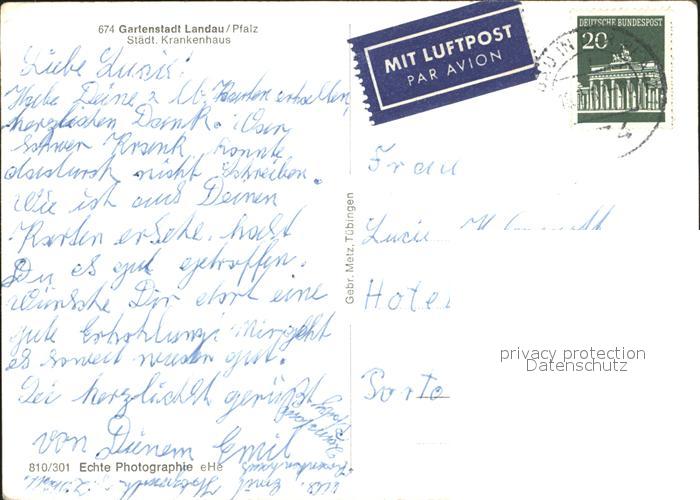 674 Gartenstadt Landau/Pfalz
Städt. Krankenhaus
MIT LUFTPOST
PAR AVION
DEUTSCHE BUNDESPOST
20
Liebe Luzie!
Habe Deine 2 lb. Karten erhalten,
herzlichen Dank. War
schwer Krank, konnte
dadurch nicht schreiben.
Wie ich aus Deinen
Karten ersehe, hast
Du es gut getroffen.
Wünsche Dir dort eine
gute Erhohlung. Mir geht
es soweit wieder gut.
Sei herzlichst gerüßt
von Deinem Emil
810/301 Echte Photographie
Gebr. Metz, Tübingen
Frau
Luzie
Hotel
Porto
privacy protection
Datenschutz